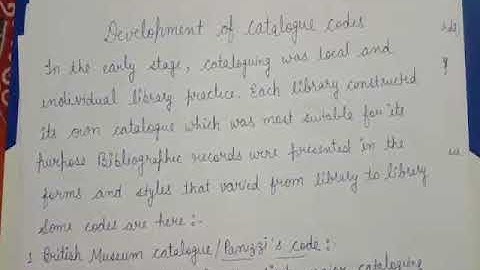 Development of catalogue codes
In the early stage, cataloguing was local and
individual library practice. Each library constructed
its own catalogue which was most suitable for its
purpose Bibliographic records were presented in the
forms and styles that varied from library to library
Some codes are here :-
1 British Museum catalogue/Panizzi's code :-
cataloguing